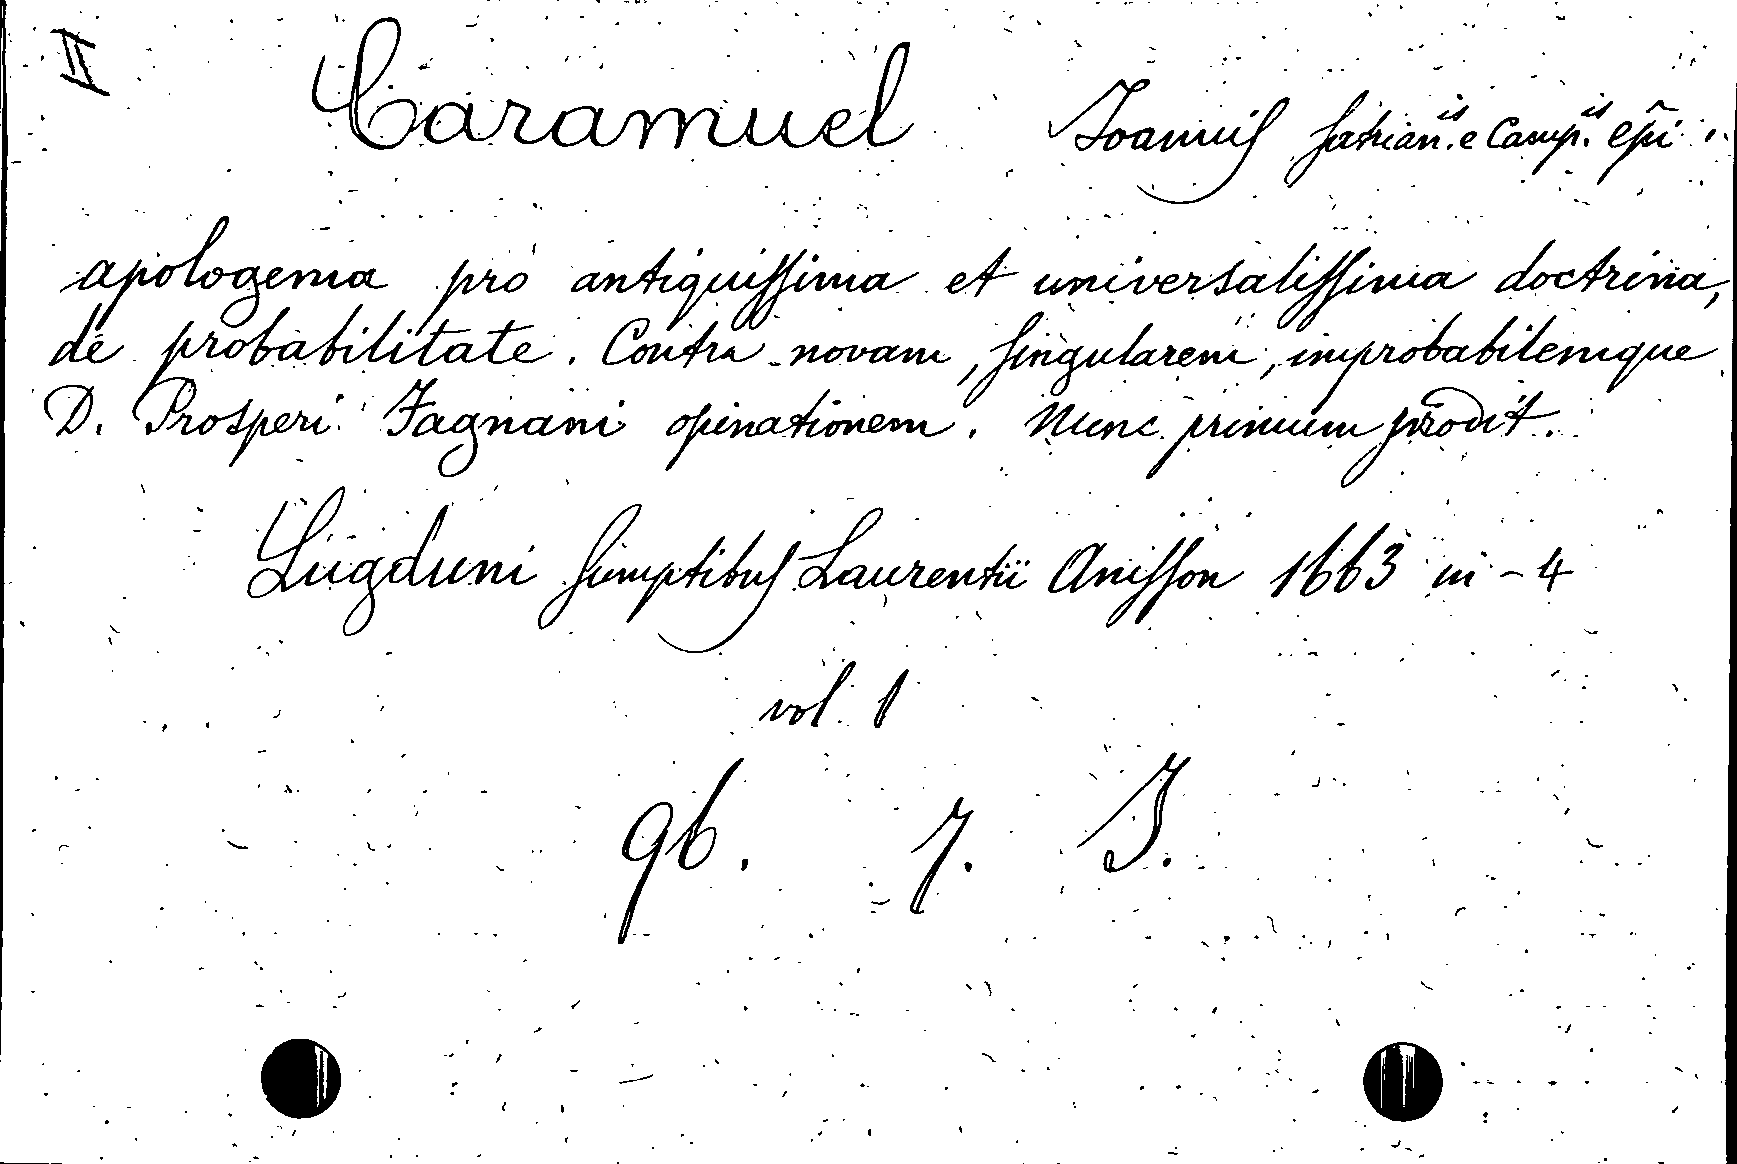 II
Caramuel Joannis Satrian.is e Camp.is epĩ
apologema pro antiquissima et universalissima doctrina,
de probabilitate. Contra novam, singularem, improbabilemque
D. Prosperi Fagnani opinationem. Nunc primum prodit.
Lugduni sumptibus Laurentii Anisson 1663 in-4
vol. 1
96. 7. J.